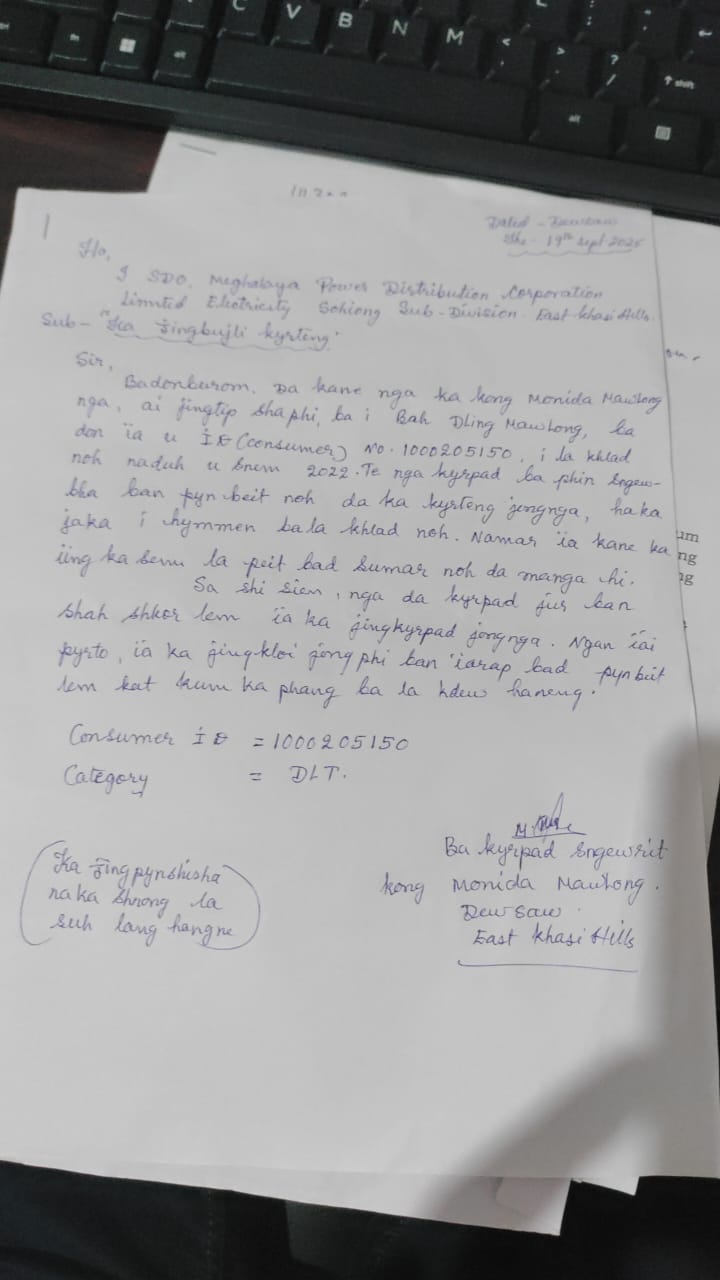 Dated - Dewsaw
the - 19th Sept 2025
Ha,
I SDO, Meghalaya Power Distribution Corporation
Limited Electricity Sohiong Sub-Division. East Khasi Hills.
Sub- "Ka Jingbujli kyrteng"
Sir,
Badonburom. Da kane nga ka kong Monida Mawlong
nga, ai jingtip sha phi, ba i Bah Dling Mawlong, ba
don ïa u ID (consumer) No. 1000205150, i la khlad
noh naduh u snem 2022. Te nga kyrpad ba phin sngew-
bha ban pyn beit noh da ka kyrteng jongnga, haka
jaka i hymmen bala khlad noh. Namar ïa kane ka
ïing ka sem la peit bad sumar noh da manga hi.
Sa shi sien, nga da kyrpad jur ban
shah shkor lem ïa ka jingkyrpad jongnga. Ngan ïai
pyrto, ïa ka jingkloi jong phi ban ïarap bad pynbeit
lem kat kum ka phang ba la kdew haneng.
Consumer ID = 1000205150
Category = DLT.
Ba kyrpad sngewrit
kong Monida Mawlong.
Dewsaw.
East Khasi Hills
Ka Jingpynshisha
naka Shnong la
suh lang hangne
um
ng